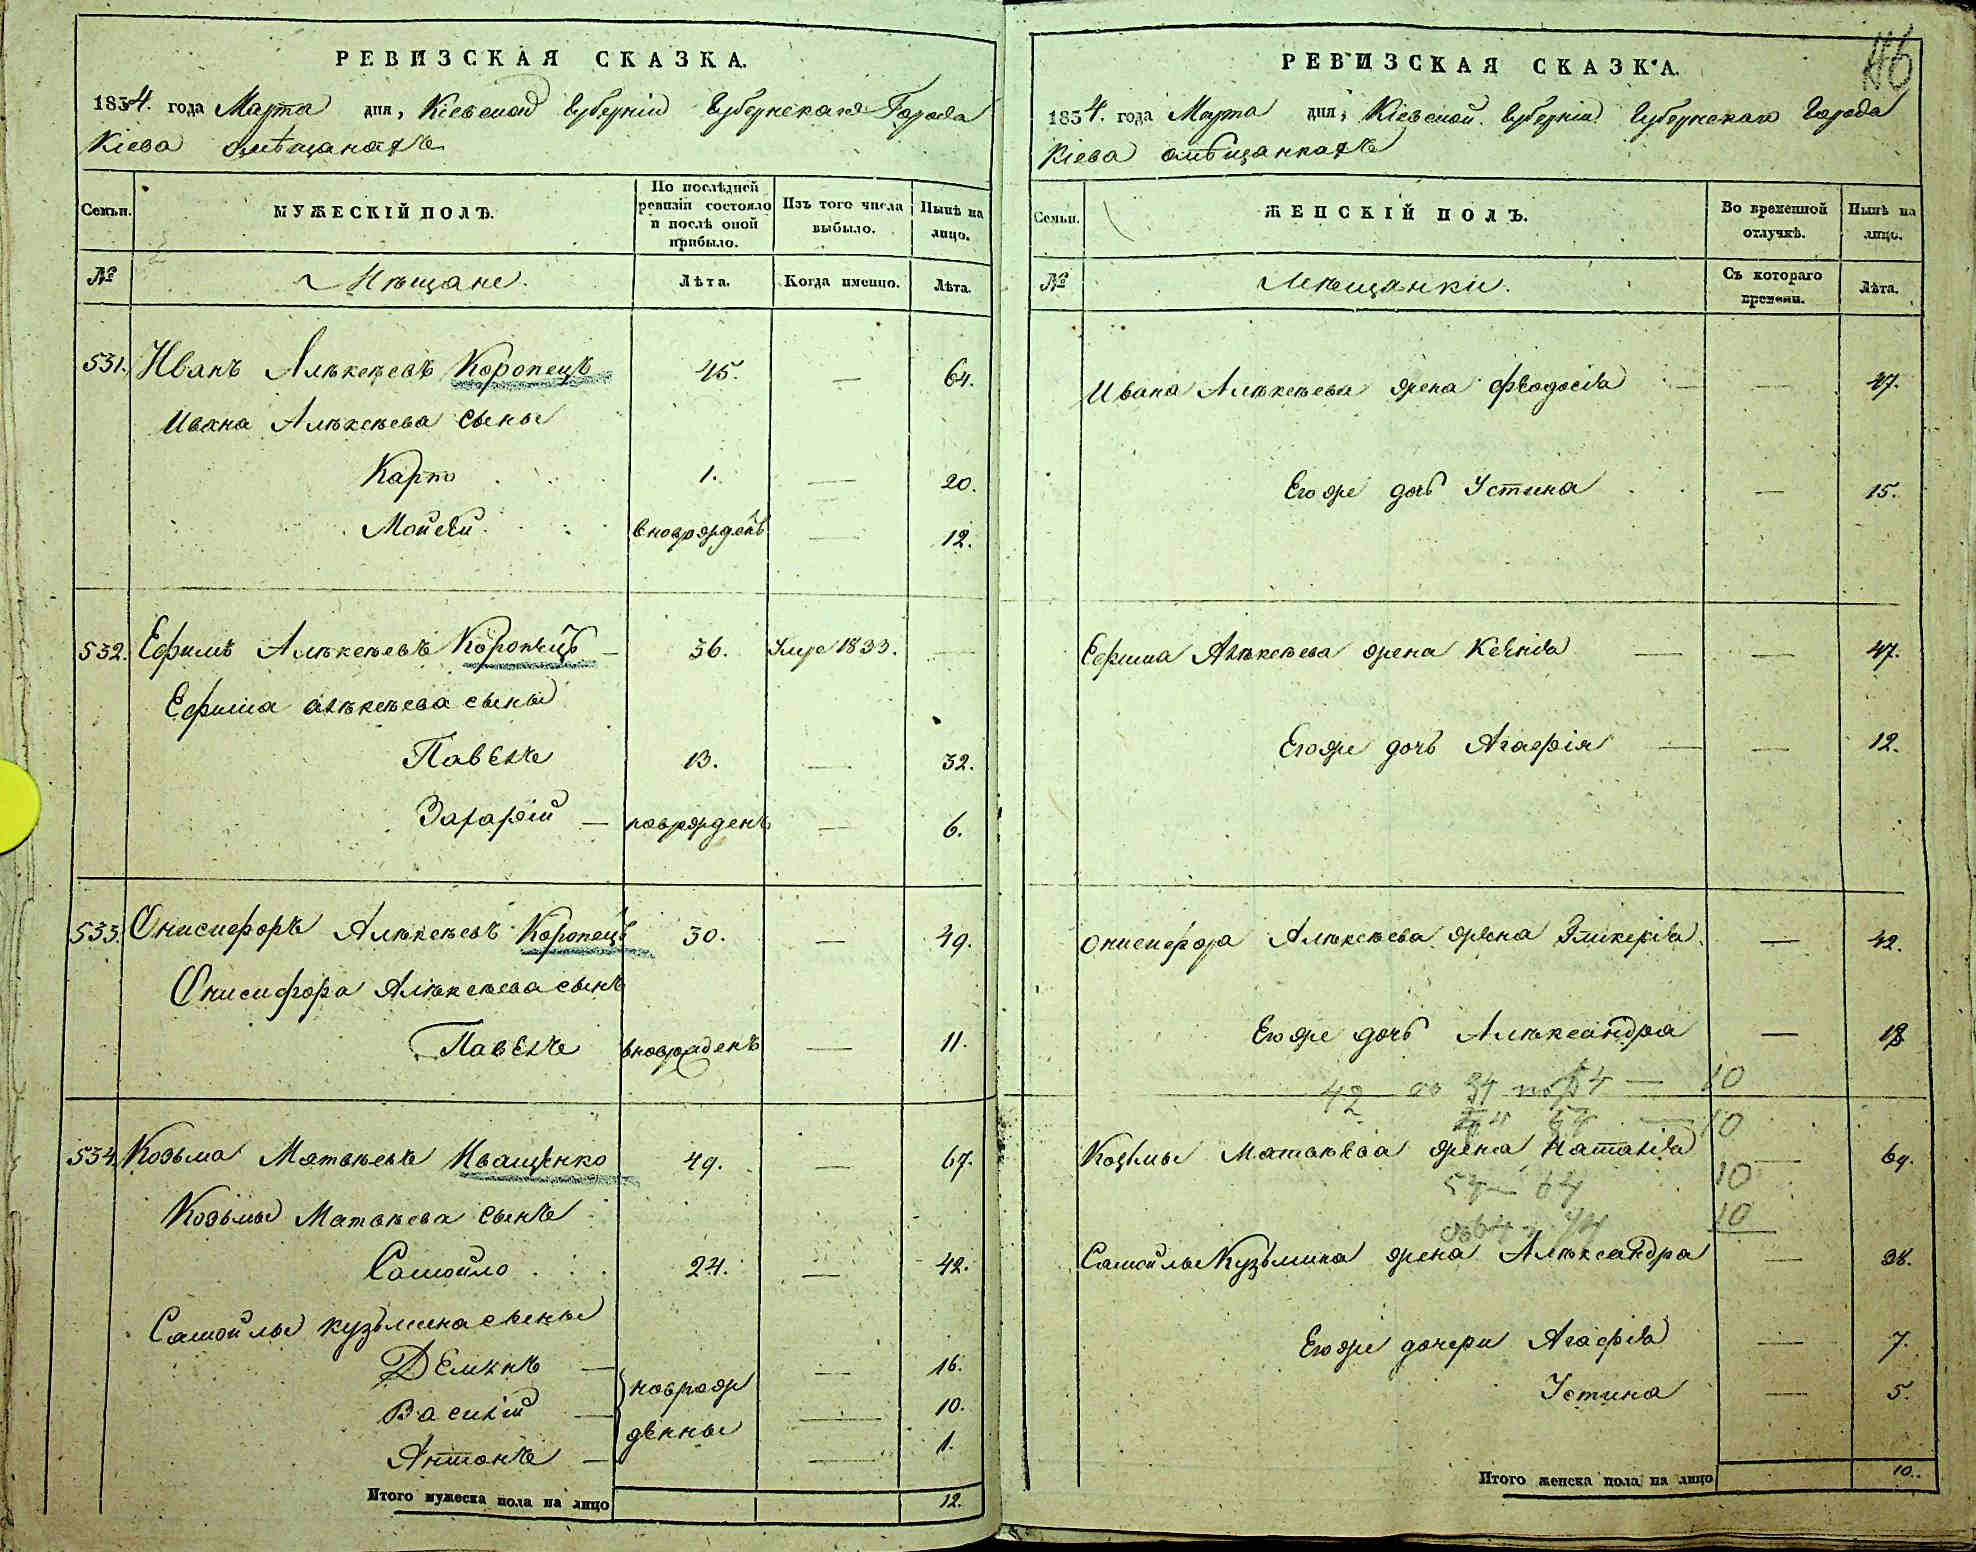 РЕВИЗСКАЯ СКАЗКА.
1854. года Марта дня, Кіевской Губерніи Губернскаго Города
Кіева о мѣщанахъ
Семьи.
МУЖЕСКІЙ ПОЛЪ.
По послѣдней ревизіи состояло и послѣ оной прибыло.
Изъ того числа выбыло.
Нынѣ на лицо.
№
Мѣщане.
Лѣта.
Когда именно.
Лѣта.
531. Иванъ Алѣксѣевъ Коропецъ 45. — 64.
Ивана Алѣксѣева сыны
Карпъ 1. — 20.
Мойсей вноврожденъ — 12.
532. Ефимъ Алѣксѣевъ Коропецъ — 36. Умре 1833. —
Ефима Алѣксѣева сыны
Павелъ 13. — 32.
Захарій — новорожденъ — 6.
533. Онисифоръ Алѣксѣевъ Коропецъ 30. — 49.
Онисифора Алѣксѣева сынъ
Павелъ вноврожденъ — 11.
534. Козьма Матвѣевъ Иващенко 49. — 67.
Козьмы Матвѣева сынъ
Самойло 24. — 42.
Самойлы Кузьмина сыны
Демянъ — — 16.
новрож
Василій — — 10.
денны
Антонъ — — 1.
Итого мужеска пола на лицо 12.
116
РЕВИЗСКАЯ СКАЗКА.
1854. года Марта дня, Кіевской Губерніи Губернскаго Города
Кіева о мѣщанкахъ
Семьи.
ЖЕНСКІЙ ПОЛЪ.
Во временной отлучкѣ.
Нынѣ на лицо.
№
Мѣщанки.
Съ котораго времени.
Лѣта.
Ивана Алѣксѣева жена Феодосія — — 47.
Его же дочь Устина — 15.
Ефима Алѣксѣева жена Ксенія — — 47.
Его же дочь Агафія — — 12.
Онисифора Алѣксѣева жена Гликерія — 42.
Его же дочь Алѣксандра — 18
42 54 64 — 10
10
Козьмы Матвѣева жена Наталія — 64.
54 — 64 10
64 — 74 10
Самойлы Кузьмина жена Алѣксандра — 38.
Его же дочери Агафія — 7.
Устина — 5.
Итого женска пола на лицо 10.